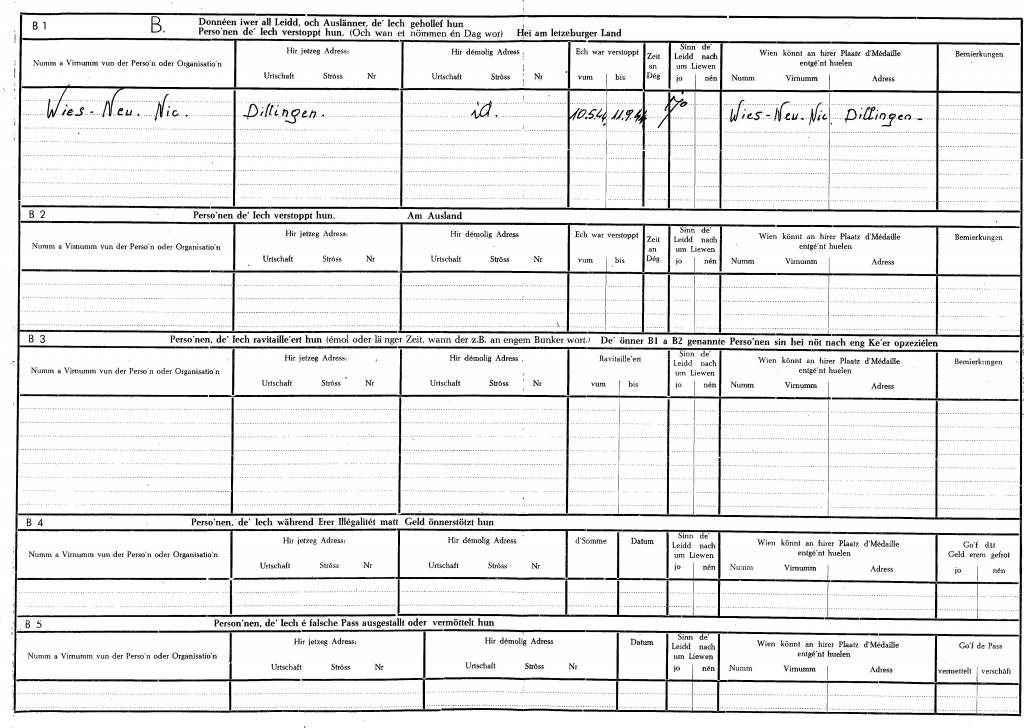 B 1 B. Donnéen iwer all Leidd, och Auslänner, de' Iech gehollef hun
Perso'nen de' Iech verstoppt hun. (Och wan et nömmen én Dag wor) Hei am letzeburger Land
Numm a Virnumm vun der Perso'n oder Organisatio'n
Hir jetzeg Adress:
Urtschaft Ströss Nr
Hir démolig Adress
Urtschaft Ströss Nr
Ech war verstoppt
vum bis
Zeit
an
Dég
Sinn de'
Leidd nach
um Liewen
jo nén
Wien könnt an hirer Plaatz d'Médaille
entgé'nt huelen
Numm Virnumm Adress
Bemierkungen
Wies - Neu. Nic. Dillingen. id. 10.5.44 11.9.44 jo Wies - Neu. Nic. Dillingen -
B 2 Perso'nen de' Iech verstoppt hun. Am Ausland
Numm a Virnumm vun der Perso'n oder Organisatio'n
Hir jetzeg Adress:
Urtschaft Ströss Nr
Hir démolig Adress
Urtschaft Ströss Nr
Ech war verstoppt
vum bis
Zeit
an
Dég
Sinn de'
Leidd nach
um Liewen
jo nén
Wien könnt an hirer Plaatz d'Médaille
entgé'nt huelen
Numm Virnumm Adress
Bemierkungen
B 3 Perso'nen, de' Iech ravitaille'ert hun (émol oder länger Zeit, wann der z.B. an engem Bunker wort.) De' önner B1 a B2 genannte Perso'nen sin hei nöt nach eng Ke'er opzeziélen
Numm a Virnumm vun der Perso'n oder Organisatio'n
Hir jetzeg Adress:
Urtschaft Ströss Nr
Hir démolig Adress
Urtschaft Ströss Nr
Ravitaille'ert
vum bis
Sinn de'
Leidd nach
um Liewen
jo nén
Wien könnt an hirer Plaatz d'Médaille
entgé'nt huelen
Numm Virnumm Adress
Bemierkungen
B 4 Perso'nen, de' Iech während Erer Illégalitét matt Geld önnerstötzt hun
Numm a Virnumm vun der Perso'n oder Organisatio'n
Hir jetzeg Adress:
Urtschaft Ströss Nr
Hir démolig Adress
Urtschaft Ströss Nr
d'Somme Datum
Sinn de'
Leidd nach
um Liewen
jo nén
Wien könnt an hirer Plaatz d'Médaille
entgé'nt huelen
Numm Virnumm Adress
Go'f dât
Geld erem gefrot
jo nén
B 5 Person'nen, de' Iech é falsche Pass ausgestallt oder vermöttelt hun
Numm a Virnumm vun der Perso'n oder Organisatio'n
Hir jetzeg Adress:
Urtschaft Ströss Nr
Hir démolig Adress:
Urtschaft Ströss Nr
Datum
Sinn de'
Leidd nach
um Liewen
jo nén
Wien könnt an hirer Plaatz d'Médaille
entgé'nt huelen
Numm Virnumm Adress
Go'f de Pass
vermettelt verschäft